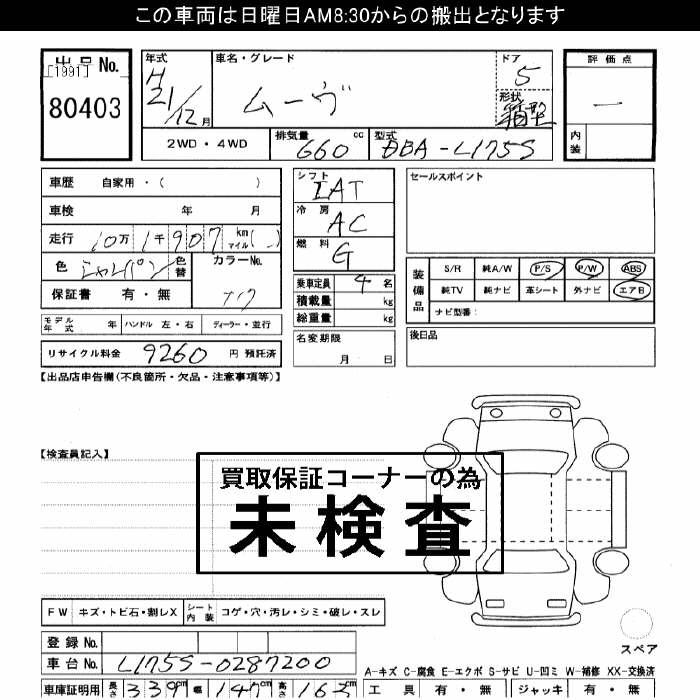 この車両は日曜日AM8:30からの搬出となります
出品No.
[1991]
80403
年式
H
21/12月
車名・グレード
ムーヴ
ドア
5
形状
箱型
評価点
—
内装
2WD・4WD
排気量
660
cc
型式
DBA-L175S
車歴 自家用・( )
車検 年 月
走行 10万1千907 km マイル( )
色 シャンパン 色替
カラーNo.
保証書 有・無
モデル年式 年 ハンドル 左・右 ディーラー・並行
リサイクル料金 9260 円 預託済
シフト
IAT
冷房
AC
燃料
G
乗車定員 4 名
積載量 kg
総重量 kg
名変期限
月 日
セールスポイント
装備品
S/R 純A/W P/S P/W ABS
純TV 純ナビ 革シート 外ナビ エアB
ナビ型番:
後日品
【出品店申告欄(不良箇所・欠品・注意事項等)】
【検査員記入】
買取保証コーナーの為
未検査
FW キズ・トビ石・割レX シート内装 コゲ・穴・汚レ・シミ・破レ・スレ
スペア
登録No.
車台No. L175S-0287200
車庫証明用 長さ 339cm 幅 147cm 高さ 165cm
A-キズ C-腐食 E-エクボ S-サビ U-凹ミ W-補修 XX-交換済
工具 有・無 ジャッキ 有・無